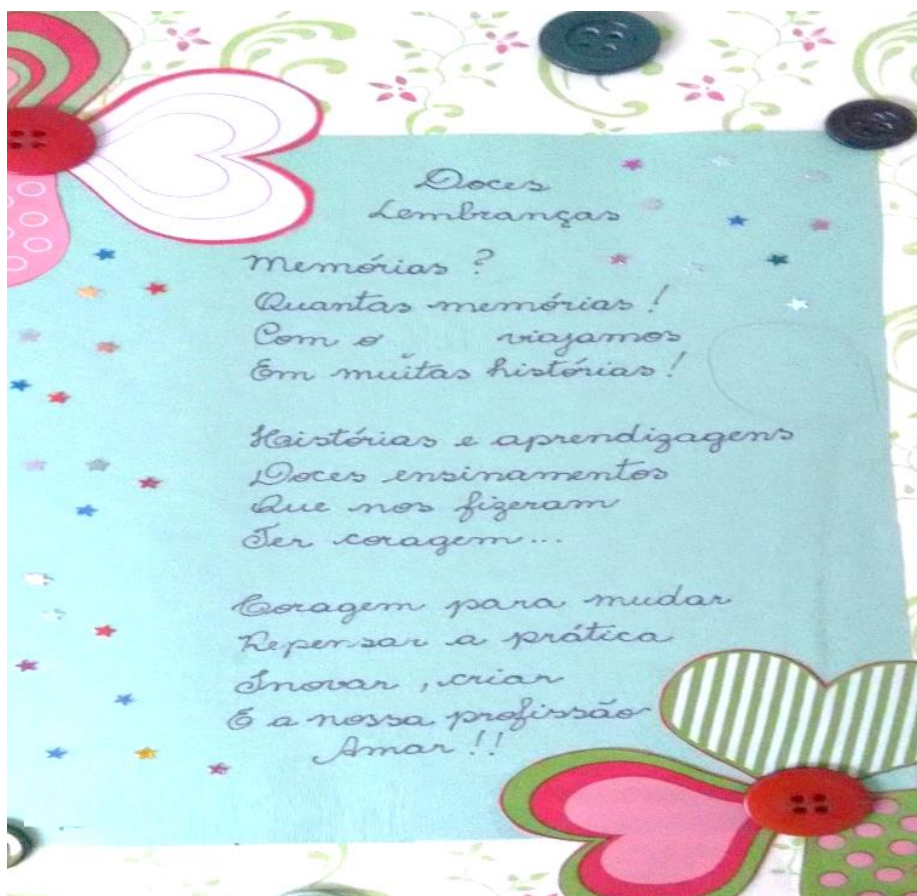 Doces
Lembranças
Memórias ?
Quantas memórias !
Com o viajamos
Em muitas histórias !
Histórias e aprendizagens
Doces ensinamentos
Que nos fizeram
Ter coragem...
Coragem para mudar
Repensar a prática
Inovar , criar
E a nossa profissão
Amar !!